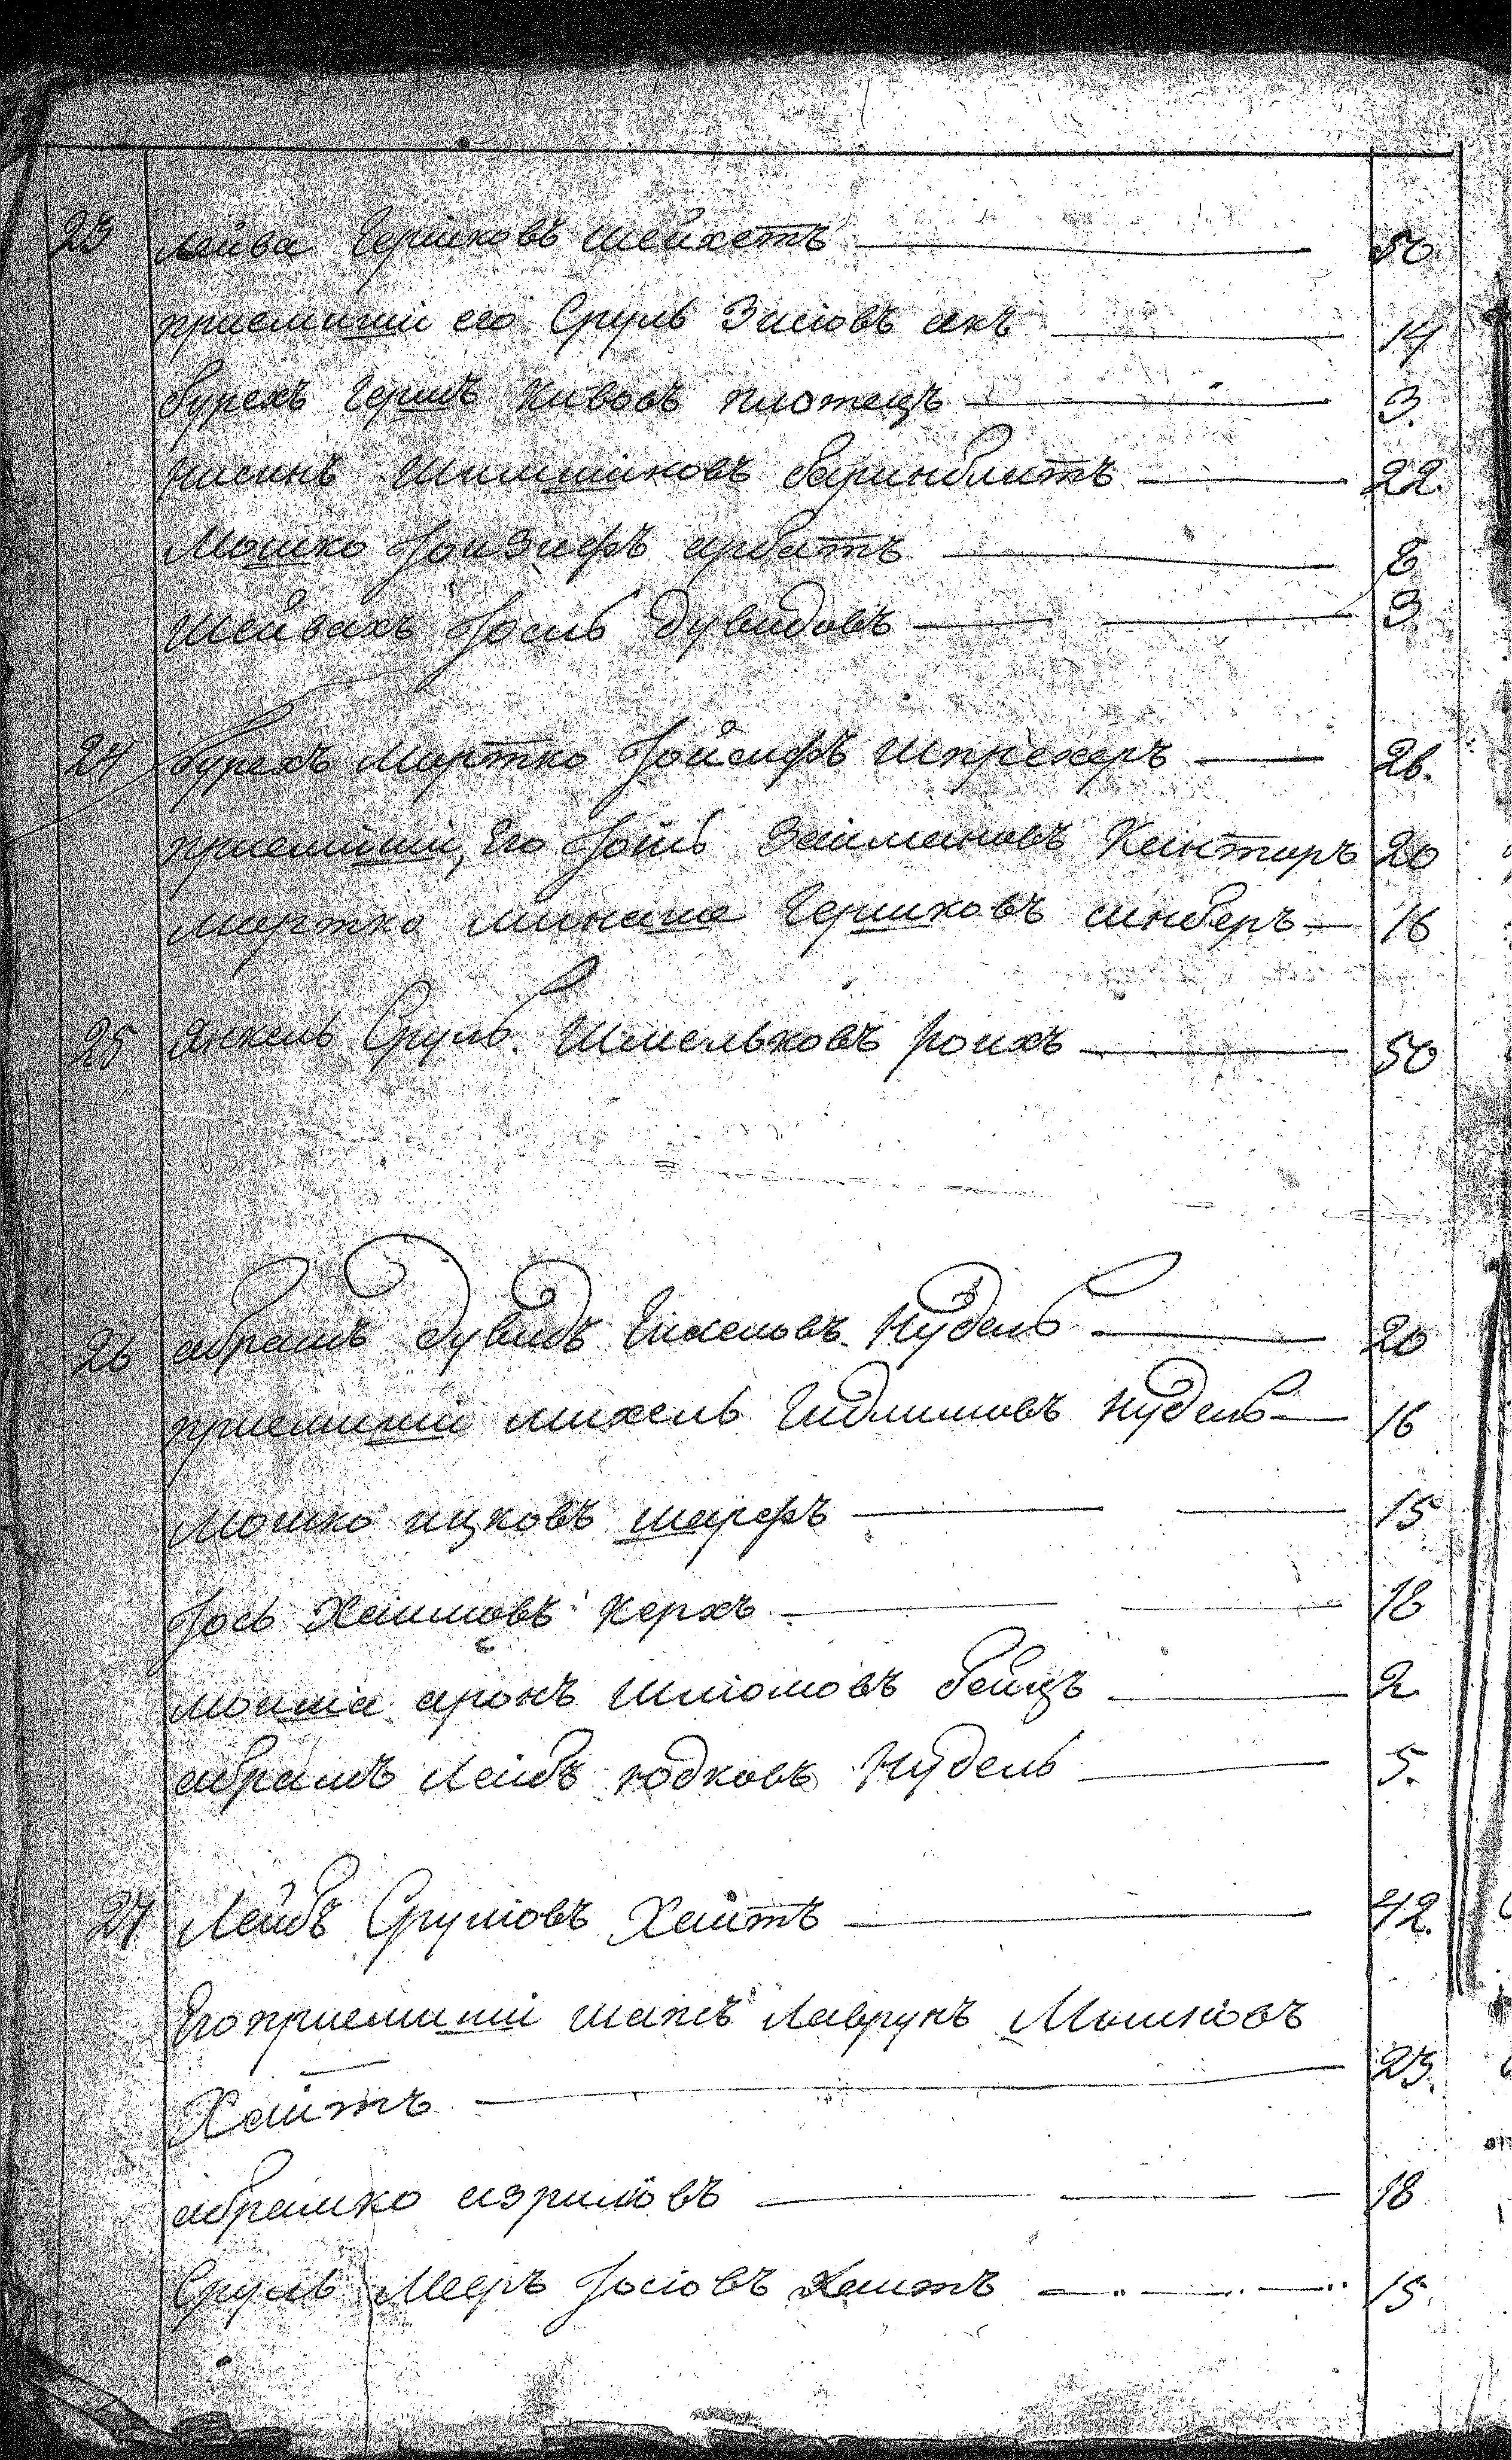 23 Лейба Гершковъ Шейхетъ — 50
приемиший его Сруль Зисіовъ акъ — 14
бурехъ Гершъ Кивовъ плотецъ — 3.
Нисинъ Шимшиковъ баринблитъ — 22.
Мошко Іоизифъ арбатъ — 8
Шейвахъ Іосиь дувидовъ — 3
24 бурехъ Мартко Іойсифъ Шпрехеръ — 26.
приемиший, Его Іосиь Займановъ Канторъ 20
Мартко минаша Гершковъ синберъ — 16
25 Янкель Сруль Шмельковъ роихъ — 50
26 абрамъ дувидъ Гихелювъ Нудель — 20
приемиший михель Гидлимовъ Нудель — 16
Мошко ицковъ шарфъ — 15
Іось Хаимовъ Керхъ — 18
моиша аронъ Шліомовъ бейцъ — 2
абрамъ Лейбъ юдковъ Нудель — 5.
27 Лейбъ Сруліовъ Хаитъ — 42.
Его приемиший шаже Лаврунъ Мошковъ
Хаитъ — 23.
абрамко изрилювъ — 18
Сруль Мееръ Іосіовъ Хаитъ — 15